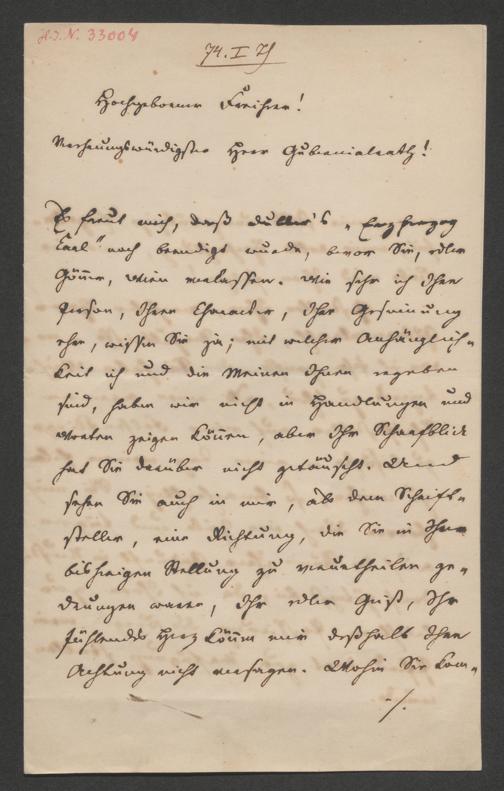 H.I.N. 33004
74. I 71
Hochgeborner Freiherr!
Verehrungswürdigster Herr Gubernialrath!
Es freut mich, daß Duller's „Erzherzog
Carl" noch beendigt wurde, bevor Sie, edler
Gönner, Wien verlassen. Wie sehr ich Ihre
Person, Ihren Character, Ihre Gesinnung
ehre, wissen Sie ja; mit welcher Anhänglich-
keit ich und die Meinen Ihnen ergeben
sind, haben wir nicht in Handlungen und
Worten zeigen können, aber Ihr Scharfblick
hat Sie darüber nicht getäuscht. Und
sehen Sie auch in mir, als dem Schrift-
steller, eine Richtung, die Sie in Ihrer
bisherigen Stellung zu verurtheilen ge-
drungen waren, Ihr edler Geist, Ihr
fühlendes Herz können mir deßhalb Ihre
Achtung nicht versagen. Wohin Sie kom-
./.